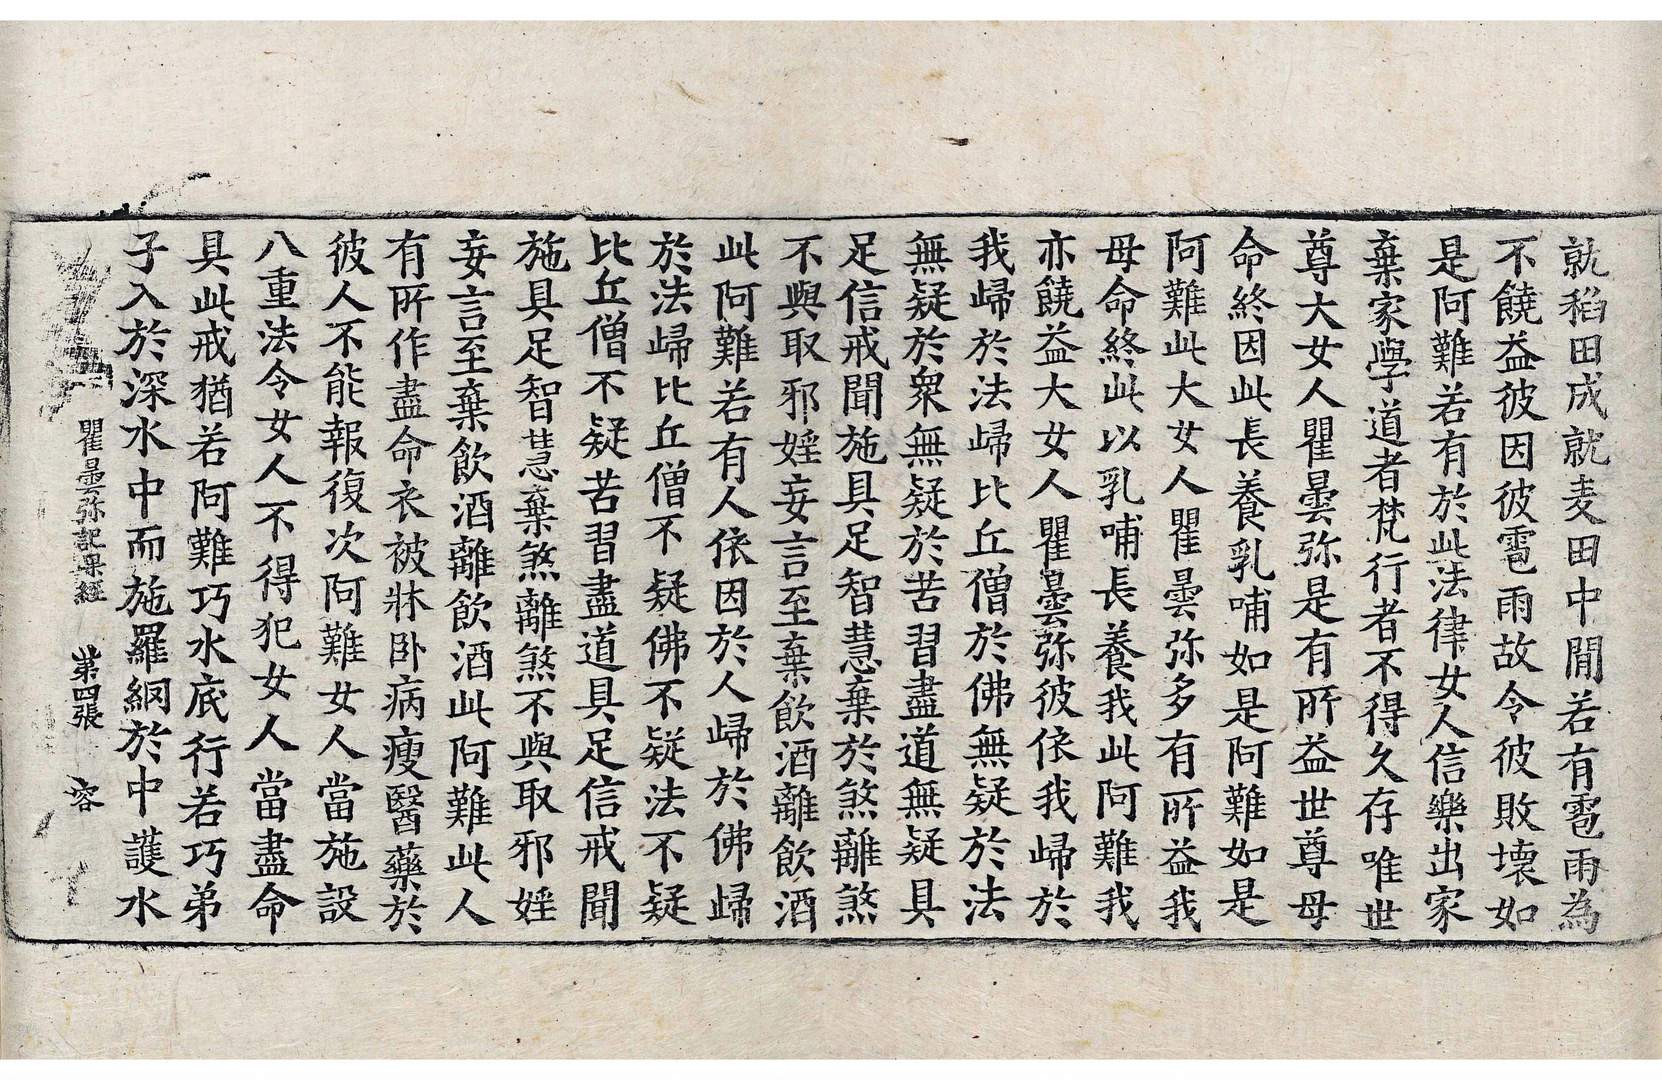 就稻田成就麦田中閒若有雹雨為
不饒益彼因彼雹雨故令彼敗壞如
是阿難若有於此法律女人信樂出家
棄家學道者梵行者不得久存唯世
尊大女人瞿曇弥是有所益世尊母
命終因此長養乳哺如是阿難如是
阿難此大女人瞿曇弥多有所益我
母命終此以乳哺長養我此阿難我
亦饒益大女人瞿曇弥彼依我歸於
我歸於法歸比丘僧於佛無疑於法
無疑於衆無疑於苦習盡道無疑具
足信戒聞施具足智慧棄於煞離煞
不與取邪婬妄言至棄飲酒離飲酒
此阿難若有人依因於人歸於佛歸
於法歸比丘僧不疑佛不疑法不疑
比丘僧不疑苦習盡道具足信戒聞
施具足智慧棄煞離煞不與取邪婬
妄言至棄飲酒離飲酒此阿難此人
有所作盡命衣被牀卧病瘦醫藥於
彼人不能報復次阿難女人當施設
八重法令女人不得犯女人當盡命
具此戒猶若阿難巧水底行若巧弟
子入於深水中而施羅網於中護水
瞿曇弥記果經 第四張 容